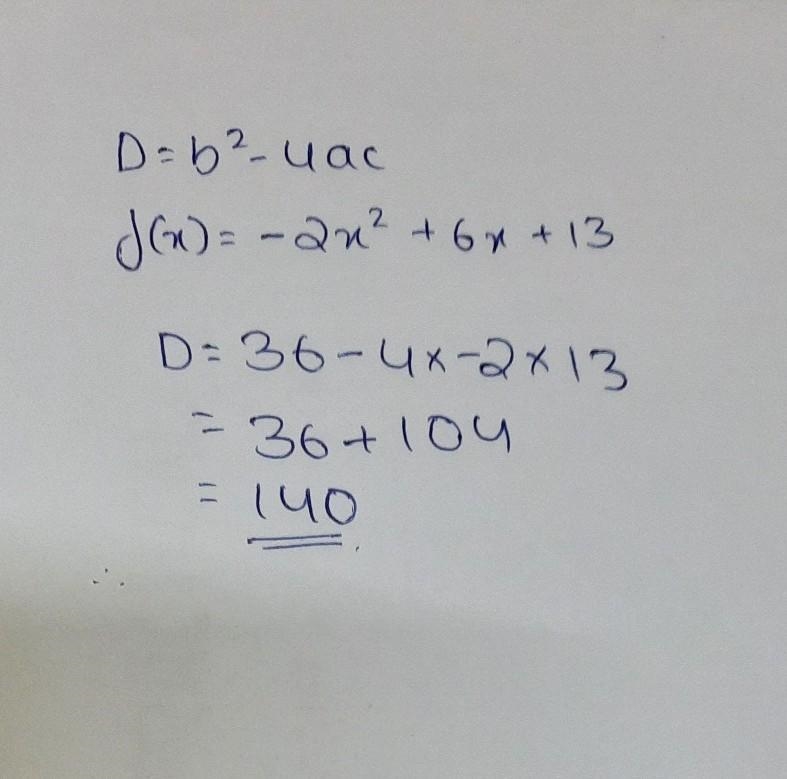 D = b² - 4ac
f(x) = -2x² + 6x + 13
D = 36 - 4x-2x13
= 36 + 104
= 140
∴